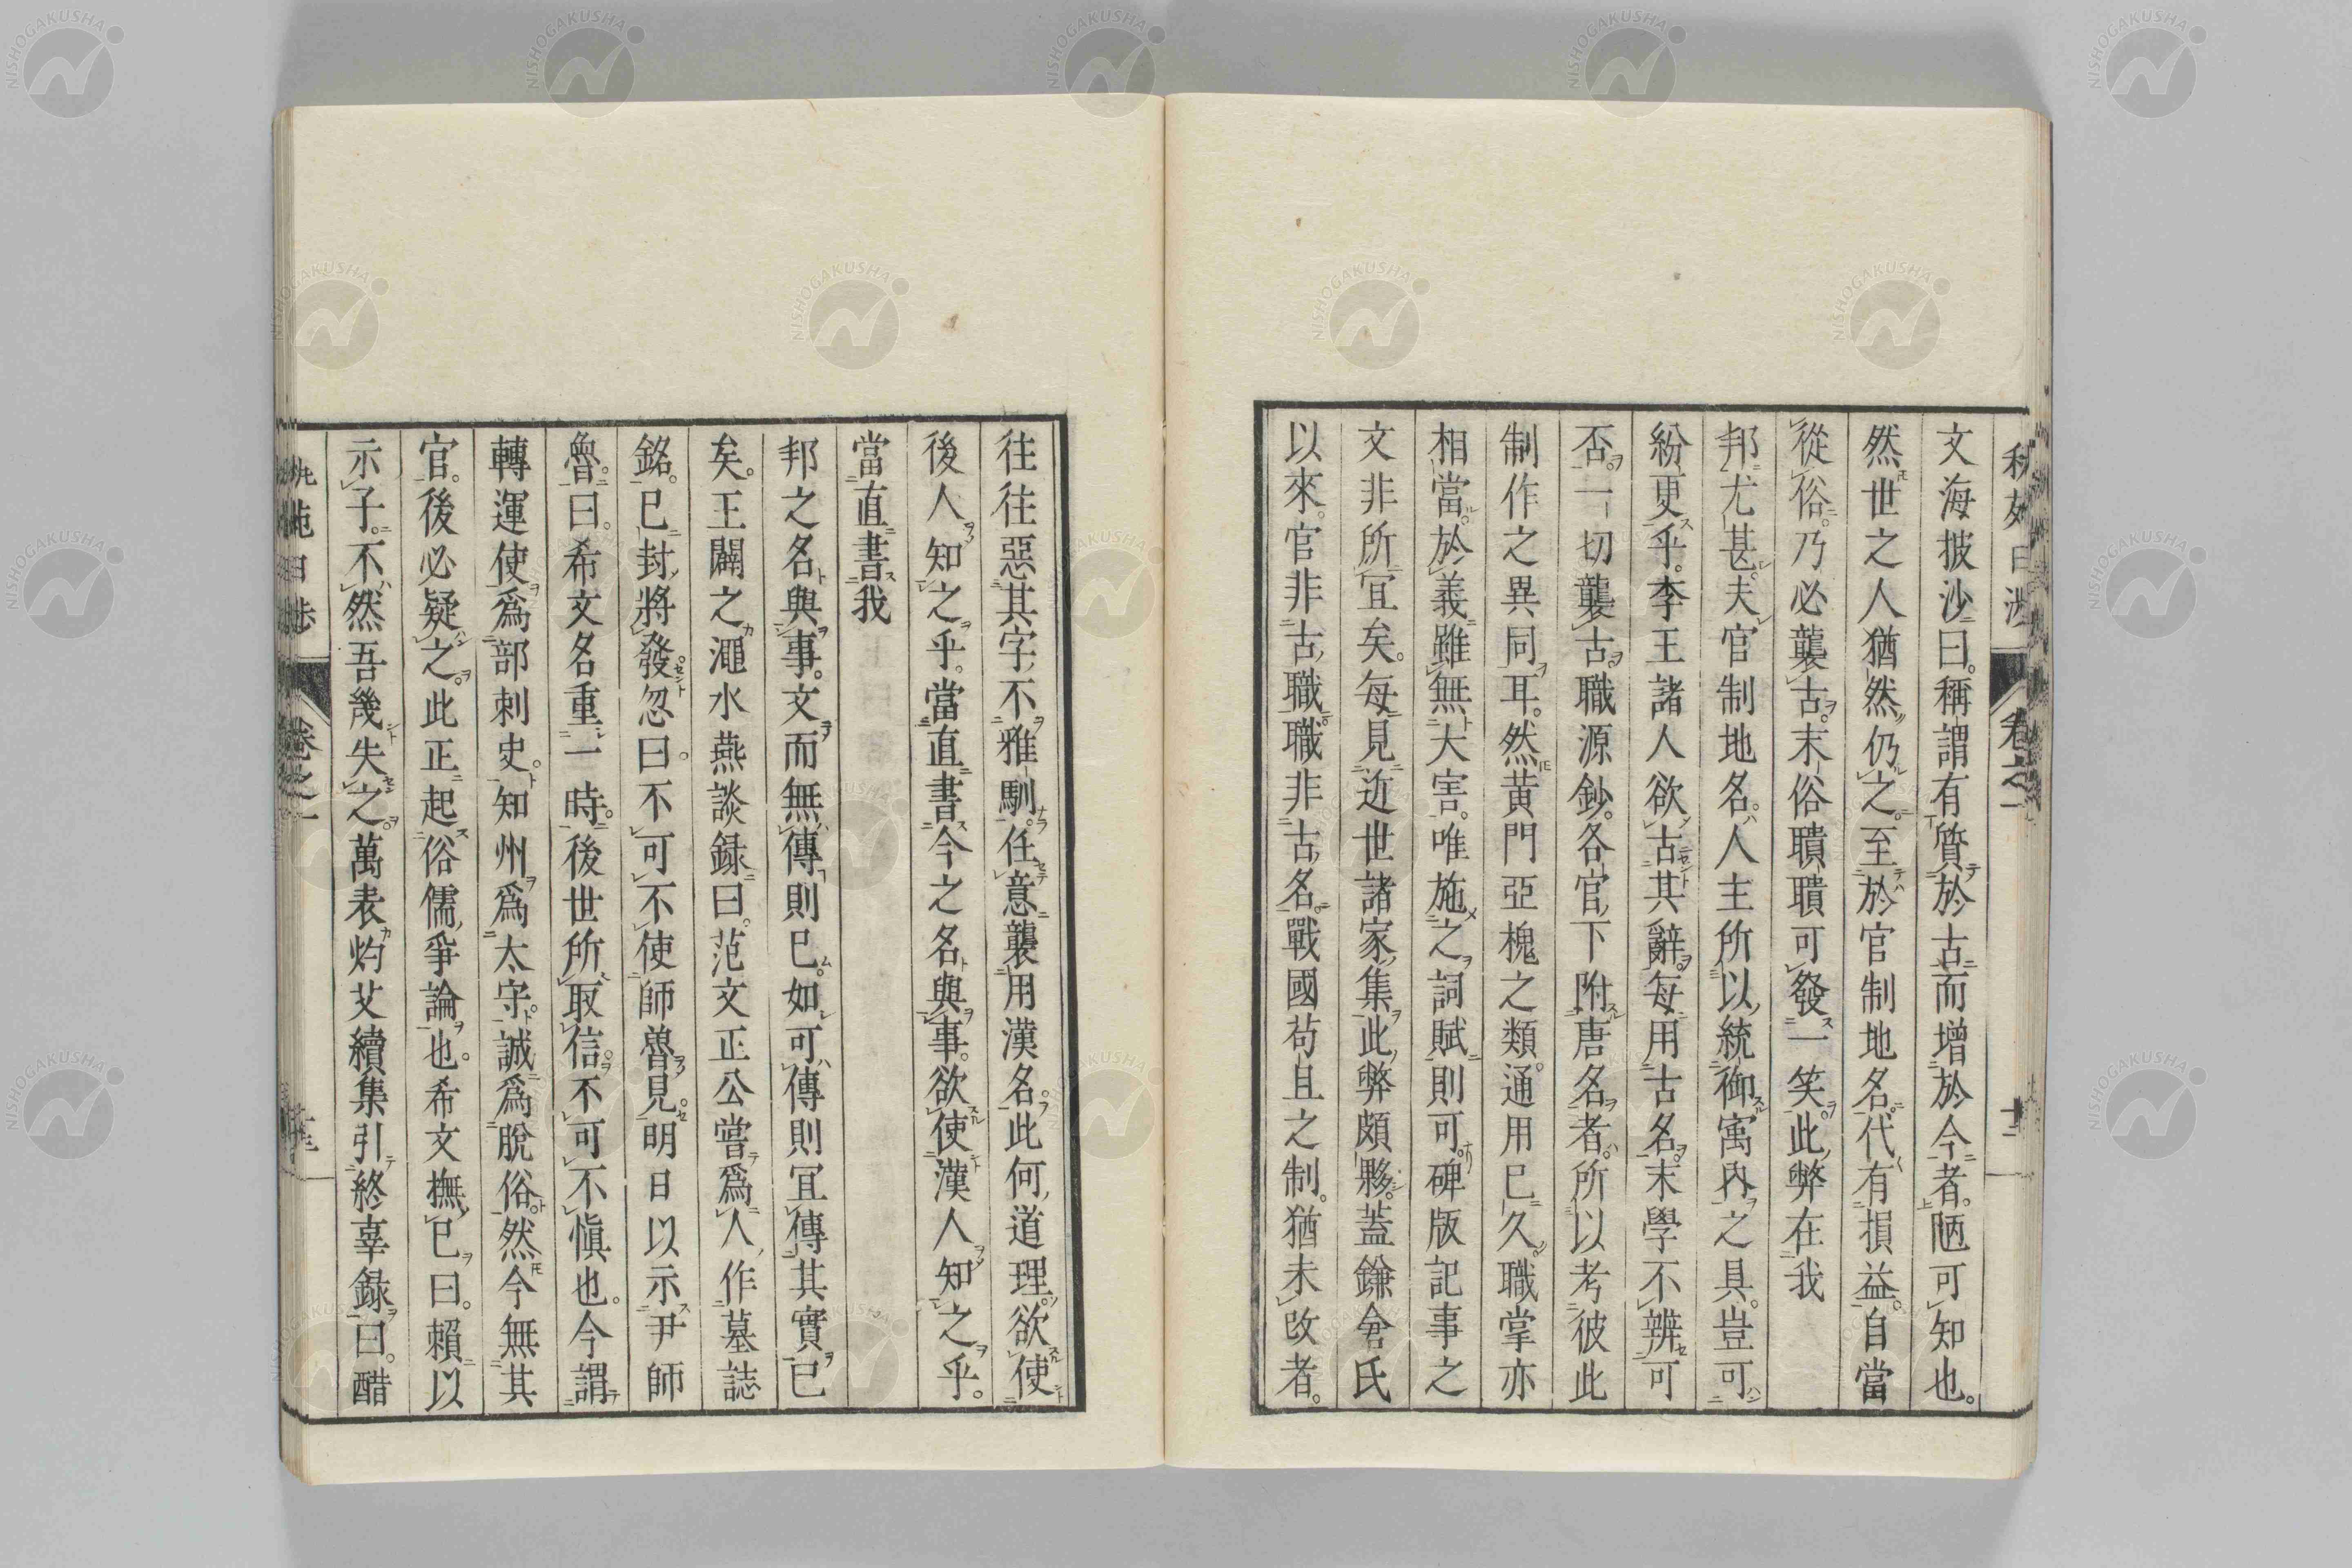 文海披沙曰。稱謂有質於古而增於今者。陋可知也。
然世之人猶然仍之。至於官制地名。代有損益。自當
從俗。乃必襲古。末俗聵聵可發一笑。此弊在我
邦尤甚。夫官制地名。人主所以統御寓內之具。豈可
紛更乎。李王諸人欲古其辭。每用古名。末學不辨可
否。一切襲古。職源鈔。各官下附唐名者。所以考彼此
制作之異同耳。然黃門亞槐之類。通用已久。職掌亦
相當。於義雖無大害。唯施之詞賦則可。碑版記事之
文非所宜矣。每見近世諸家集。此弊頗夥。蓋鎌倉氏
以來。官非古職。職非古名。戰國苟且之制。猶未改者。
往往惡其字不雅馴。任意襲用漢名。此何道理。欲使
後人知之乎。當直書今之名與事。欲使漢人知之乎。
當直書我
邦之名與事。文而無傳則已。如可傳則宜傳其實已
矣。王闢之澠水燕談録曰。范文正公嘗爲人作墓誌
銘。已封將發忽曰。不可不使師魯見。明日以示尹師
魯。曰。希文名重一時。後世所取信。不可不愼也。今謂
轉運使爲部刺史。知州爲太守。誠爲脫俗。然今無其
官。後必疑之。此正起俗儒爭論也。希文撫已曰。賴以
示子。不然吾幾失之。萬表灼艾續集引終辜録曰。醋
卷之一